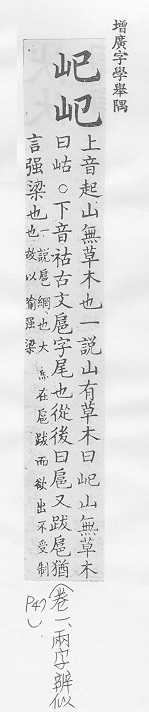 增廣字學舉隅
屺
上音起山無草木也一説山有草木曰屺山無草木
曰岵○下音祜古文扈字尾也從後曰扈又跋扈猶
言强梁也一説扈網也大魚在扈跋而欲出不受制
也故以喻强梁
(卷一、兩字辨似
P47)